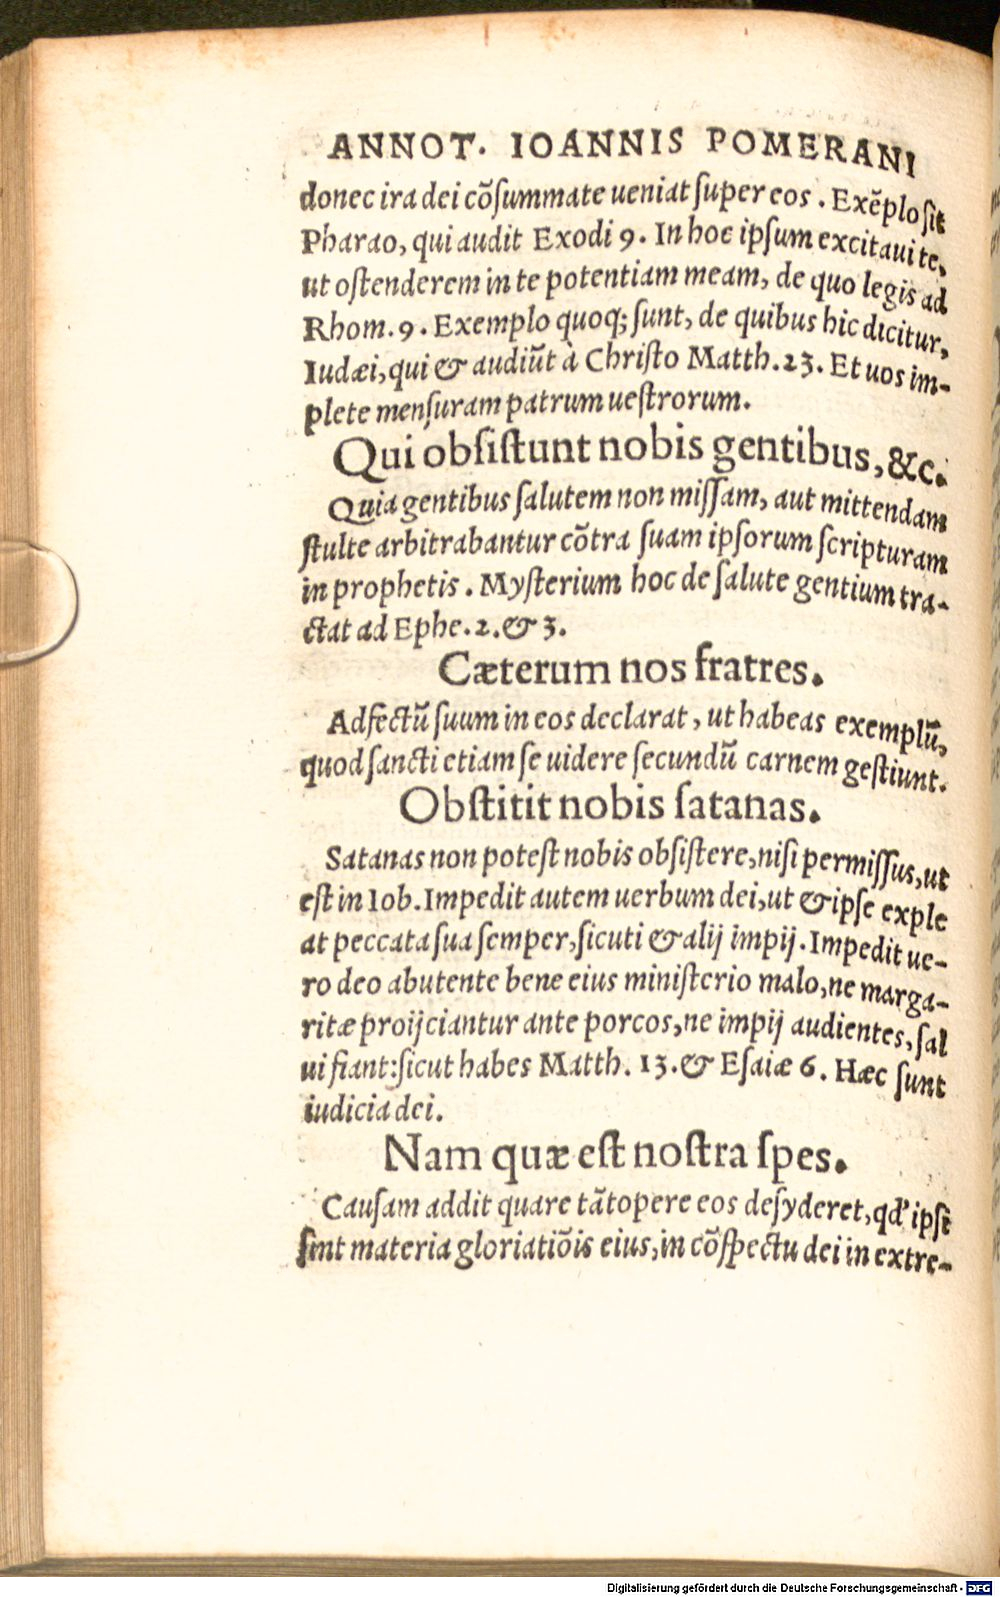 ANNOT. IOANNIS POMERANI
donec ira dei cõſummate ueniat ſuper eos. Exẽplo ſit
Pharao, qui audit Exodi 9. In hoc ipſum excitaui te,
ut oſtenderem in te potentiam meam, de quo legis ad
Rhom. 9. Exemplo quoq; ſunt, de quibus hic dicitur,
Iudæi, qui & audiũt à Chriſto Matth. 23. Et uos im-
plete menſuram patrum ueſtrorum.
Qui obſiſtunt nobis gentibus, &c.
Quia gentibus ſalutem non miſſam, aut mittendam
ſtulte arbitrabantur cõtra ſuam ipſorum ſcripturam
in prophetis. Myſterium hoc de ſalute gentium tra-
ctat ad Ephe. 2. & 3.
Cæterum nos fratres.
Adfectũ ſuum in eos declarat, ut habeas exemplũ,
quod ſancti etiam ſe uidere ſecundũ carnem geſtiunt.
Obſtitit nobis ſatanas.
Satanas non poteſt nobis obſiſtere, niſi permiſſus, ut
eſt in Iob. Impedit autem uerbum dei, ut & ipſe exple
at peccata ſua ſemper, ſicuti & alij impij. Impedit ue-
ro deo abutente bene eius miniſterio malo, ne marga-
ritæ proijciantur ante porcos, ne impij audientes, ſal
ui fiant: ſicut habes Matth. 13. & Eſaiæ 6. Hæc ſunt
iudicia dei.
Nam quæ eſt noſtra ſpes.
Cauſam addit quare tãtopere eos deſyderet, qd' ipſi
ſint materia gloriatiõis eius, in cõſpectu dei in extre-
Digitalisierung gefördert durch die Deutsche Forschungsgemeinschaft - DFG